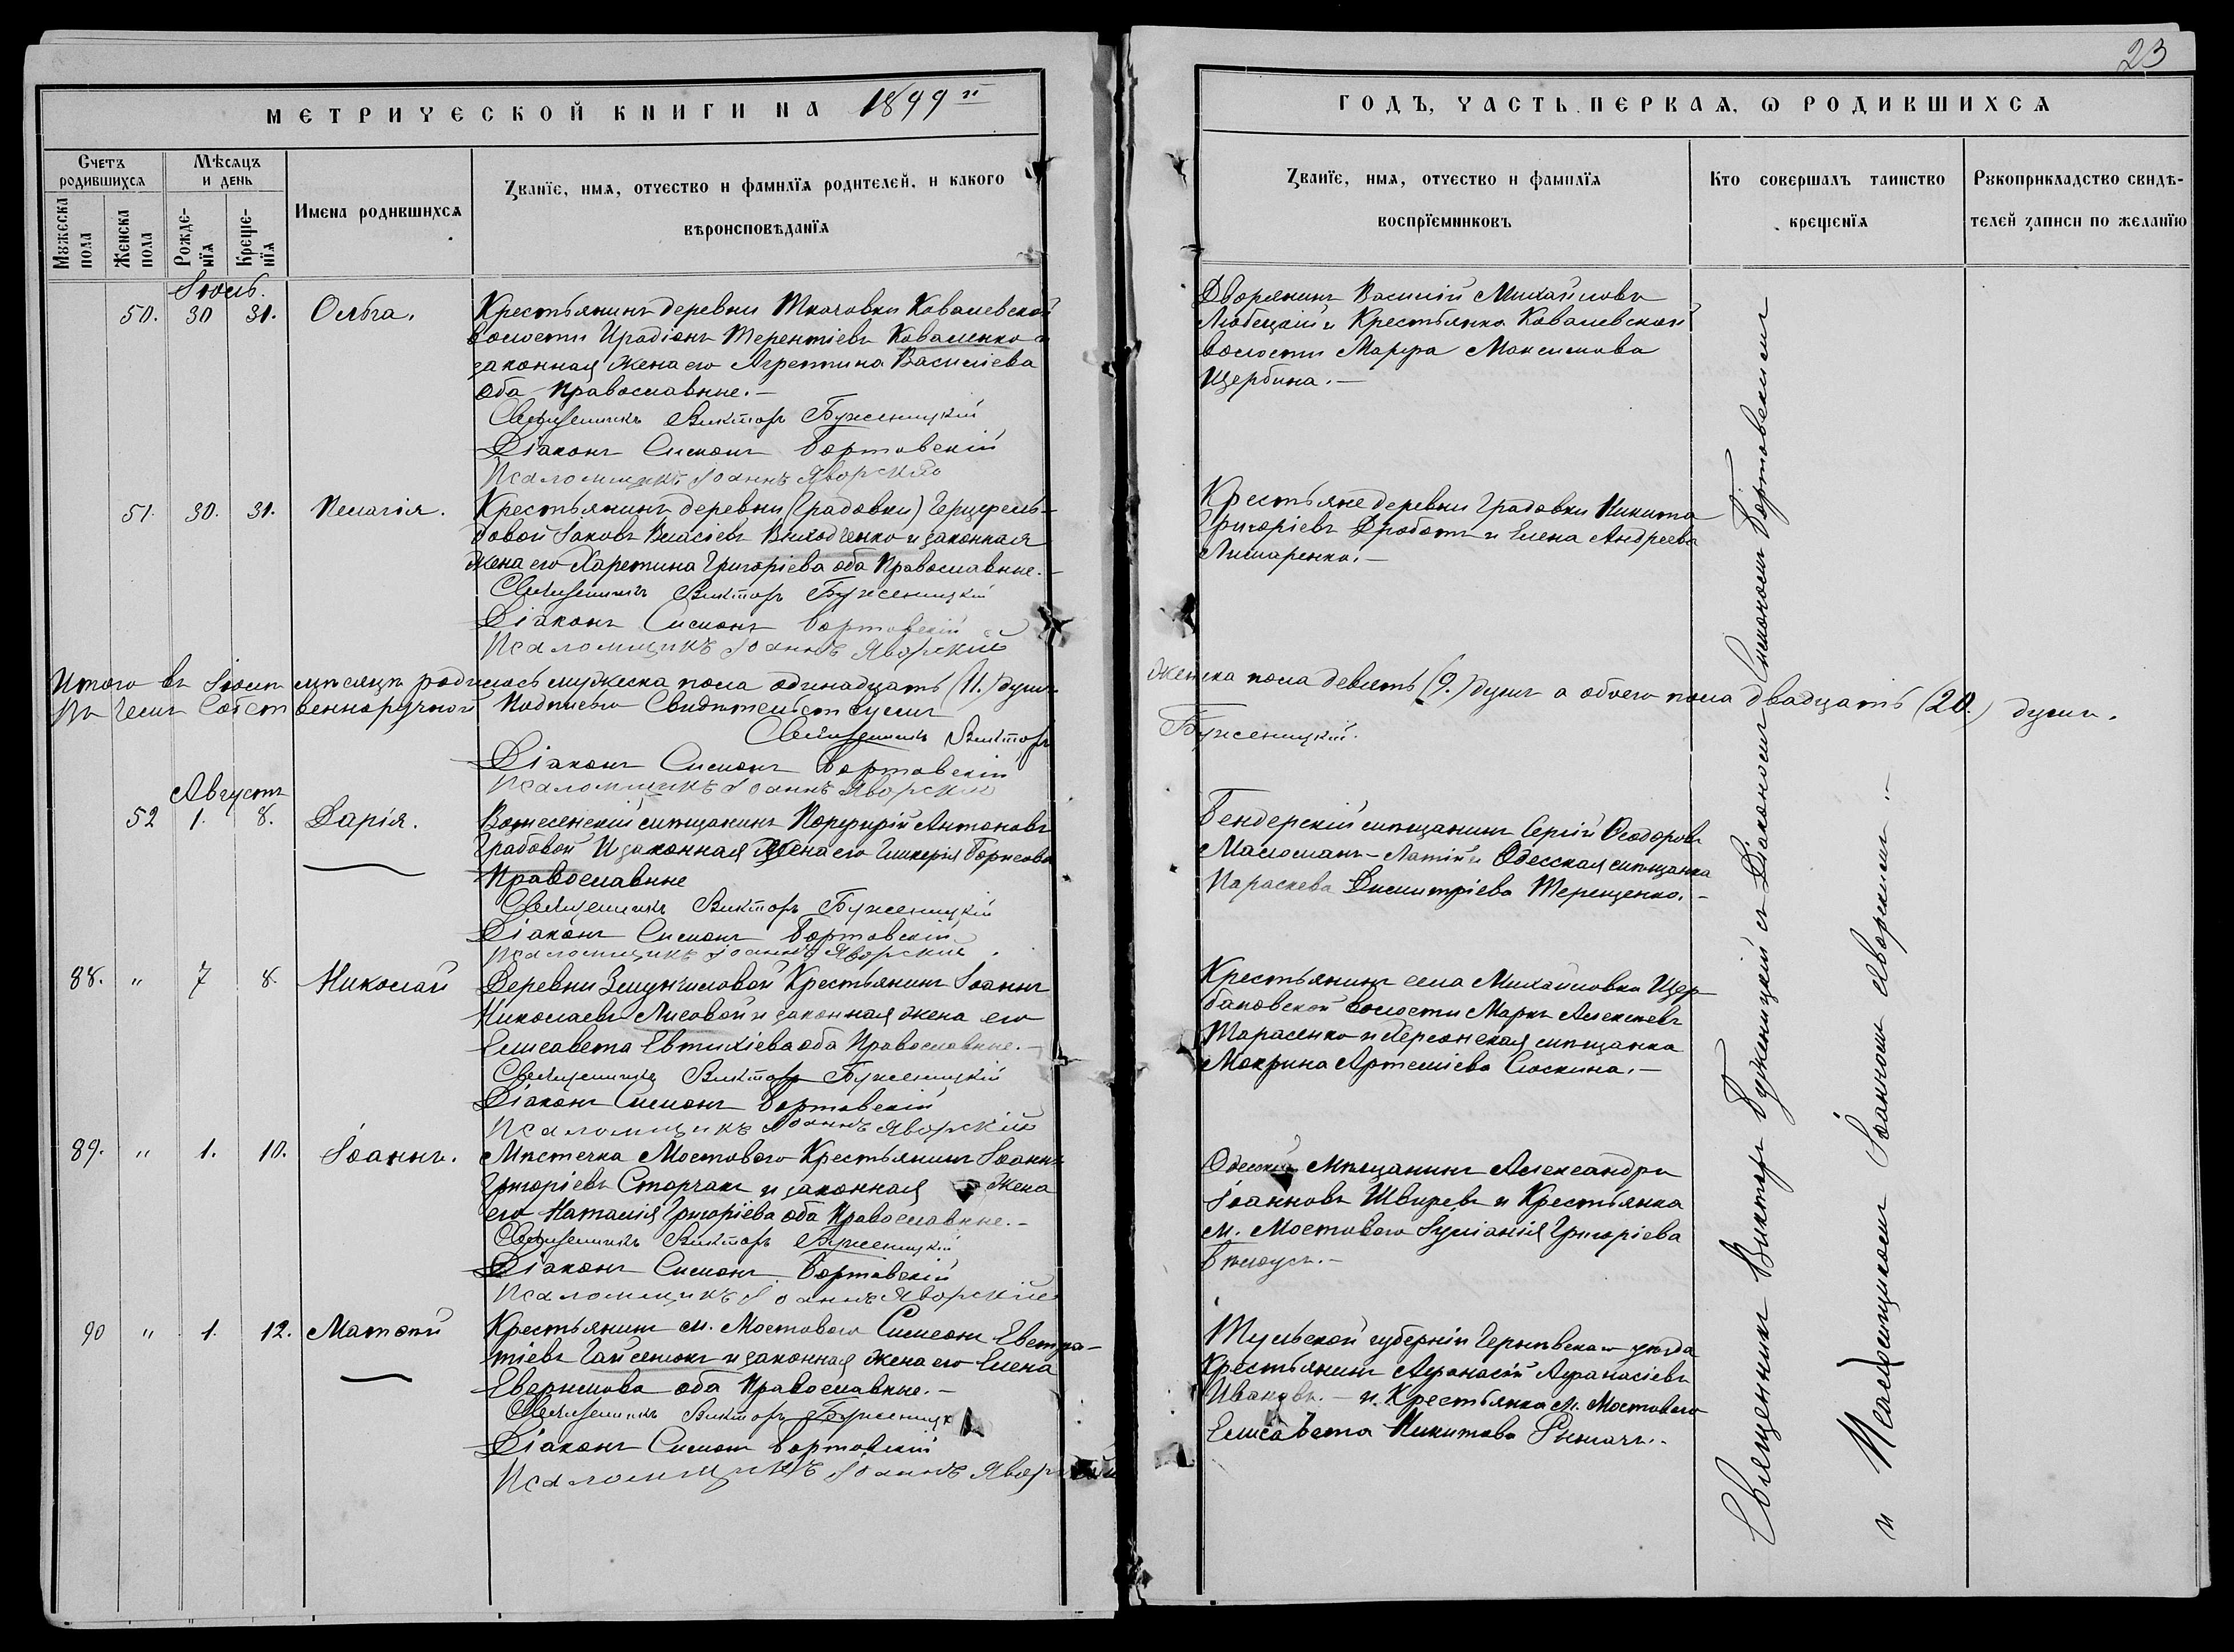 23
МЕТРИЧЕСКОЙ КНИГИ НА 1899й
ГОДЪ, ЧАСТЬ ПЕРВАЯ, О РОДИВШИХСЯ
Счетъ родившихся
Мѣсяцъ и день
Мужеска пола
Женска пола
Рожденїя
Крещенїя
Имена родившихся
Званїе, имя, отчество и фамилїя родителей, и какого
вѣроисповѣданїя
Званїе, имя, отчество и фамилїя
воспрїемниковъ
Кто совершалъ таинство
крещенїя
Рукоприкладство свидѣ-
телей записи по желанїю
Іюль.
50. 30 31. Ольга.
Крестьянинъ деревни Ткачовки Ковалевской
волости Ирадіонъ Терентіевъ Коваленко и
законная жена его Агрепина Василіева
оба православные.–
Священникъ Викторъ Буженицкій
Діаконъ Симеонъ Бортовскій
Псаломщикъ Іоаннъ Яворскій
Дворянинъ Василій Михайловъ
Любецкій и Крестьянка Ковалевской
волости Марфа Максимова
Щербина.–
51. 30. 31. Пелагія.
Крестьянинъ деревни (Градовки) Герцфель-
довой Іаковъ Власіевъ Выходченко и законная
жена его Харетина Григоріева оба Православные.–
Священникъ Викторъ Буженицкій
Діаконъ Симеонъ Бортовскій
Псаломщикъ Іоаннъ Яворскій
Крестьяне деревни Градовки Никита
Григоріевъ Дроботъ и Елена Андреева
Лимаренко.–
Итого въ Іюлѣ мѣсяцѣ родилось мужеска пола одинадцать (11.) душъ
женска пола девять (9.) душъ а обоего пола двадцать (20.) душъ.
Въ чемъ Собственноручной Подписью Свидѣтельствуемъ
Священникъ Викторъ
Буженицкій.
Діаконъ Симеонъ Бортовскій
Псаломщикъ Іоаннъ Яворскій
Августъ
52 1. 8. Дарія.
Вознесенскій мѣщанинъ Порфирій Антоновъ
Градовой и законная жена его Гликерія Борисова
Православные
Священникъ Викторъ Буженицкій
Діаконъ Симеонъ Бортовскій
Псаломщикъ Іоаннъ Яворскій
Бендерскій мѣщанинъ Сергій Ѳеодоровъ
и Одесская мѣщанка
Параскева Димитріева Терещенко.–
88. " 7 8. Николай
Деревни Крестьянинъ Іоаннъ
Николаевъ Лисовой и законная жена его
Елисавета Евтихіева оба Православные.–
Священникъ Викторъ Буженицкій
Діаконъ Симеонъ Бортовскій
Псаломщикъ Іоаннъ Яворскій
Крестьянинъ села Михайловки Щер-
баковской волости Маркъ Алексѣевъ
Тарасенко и Херсонская мѣщанка
Макрина Артеміева Сюскина.–
89. " 1. 10. Іоаннъ.
Мѣстечка Мостового Крестьянинъ Іоаннъ
Григоріевъ Сторчакъ и законная жена
его Наталія Григоріева оба Православные.–
Священникъ Викторъ Буженицкій
Діаконъ Симеонъ Бортовскій
Псаломщикъ Іоаннъ Яворскій
Одесскій Мѣщанинъ Александръ
Іоанновъ Швыревъ и Крестьянка
м. Мостового Іуліанія Григоріева
Бѣлоусъ.–
90 " 1. 12. Матѳей
Крестьянинъ м. Мостового Симеонъ Евстра-
тіевъ Гайсенюкъ и законная жена его Елена
Евфимова оба Православные.–
Священникъ Викторъ Бужениц
Діаконъ Симеонъ Бортовскій
Псаломщикъ Іоаннъ Яворскій
Тульской губерніи Чернскаго уѣзда
Крестьянинъ Афанасій Афанасіевъ
Ивановъ.– и Крестьянка м. Мостового
Елисавета Никитова
Священникъ Викторъ Буженицкій съ Діакономъ Симеономъ Бортовскимъ
и Псаломщикомъ Іоанномъ Яворскимъ.–